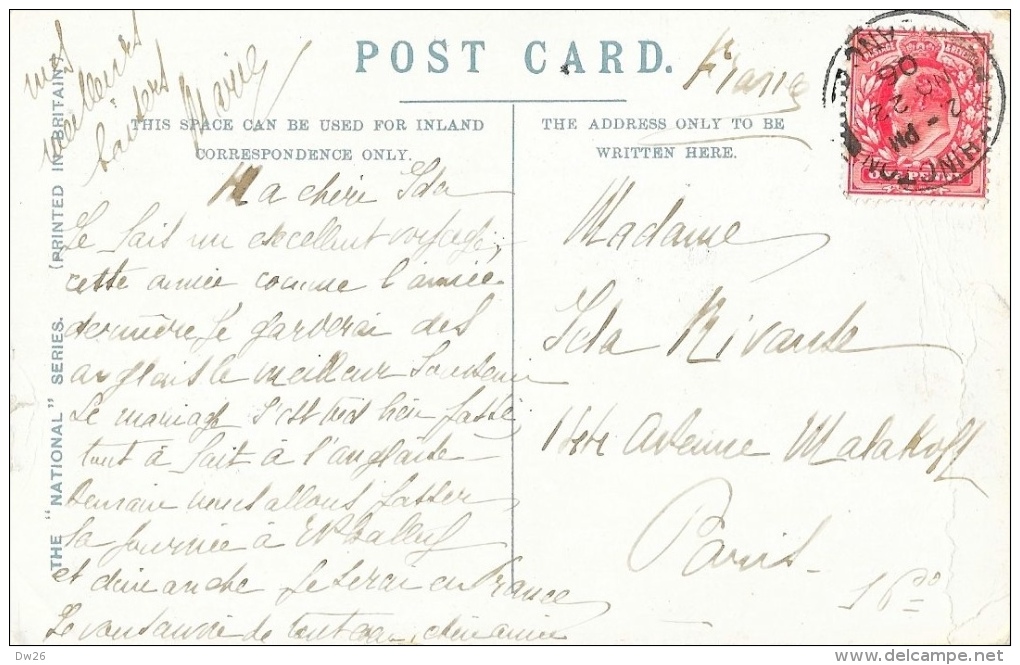 POST CARD.
THIS SPACE CAN BE USED FOR INLAND
CORRESPONDENCE ONLY.
THE ADDRESS ONLY TO BE
WRITTEN HERE.
THE "NATIONAL" SERIES. (PRINTED IN BRITAIN).
mes
meilleures
baisers
France
Ma chère Ida
Je fais un excellent voyage,
cette année comme l'année
dernière je garderai des
anglais le meilleur souvenir
Le mariage s'est très bien passé
tout à fait à l'anglaise
Demain nous allons passer
la journée à
et dimanche je serai en France
Je de chère amie
Madame
Ida
Avenue Malakoff
Paris
2 PM
NO 22
06
Dw26
delcampe.net